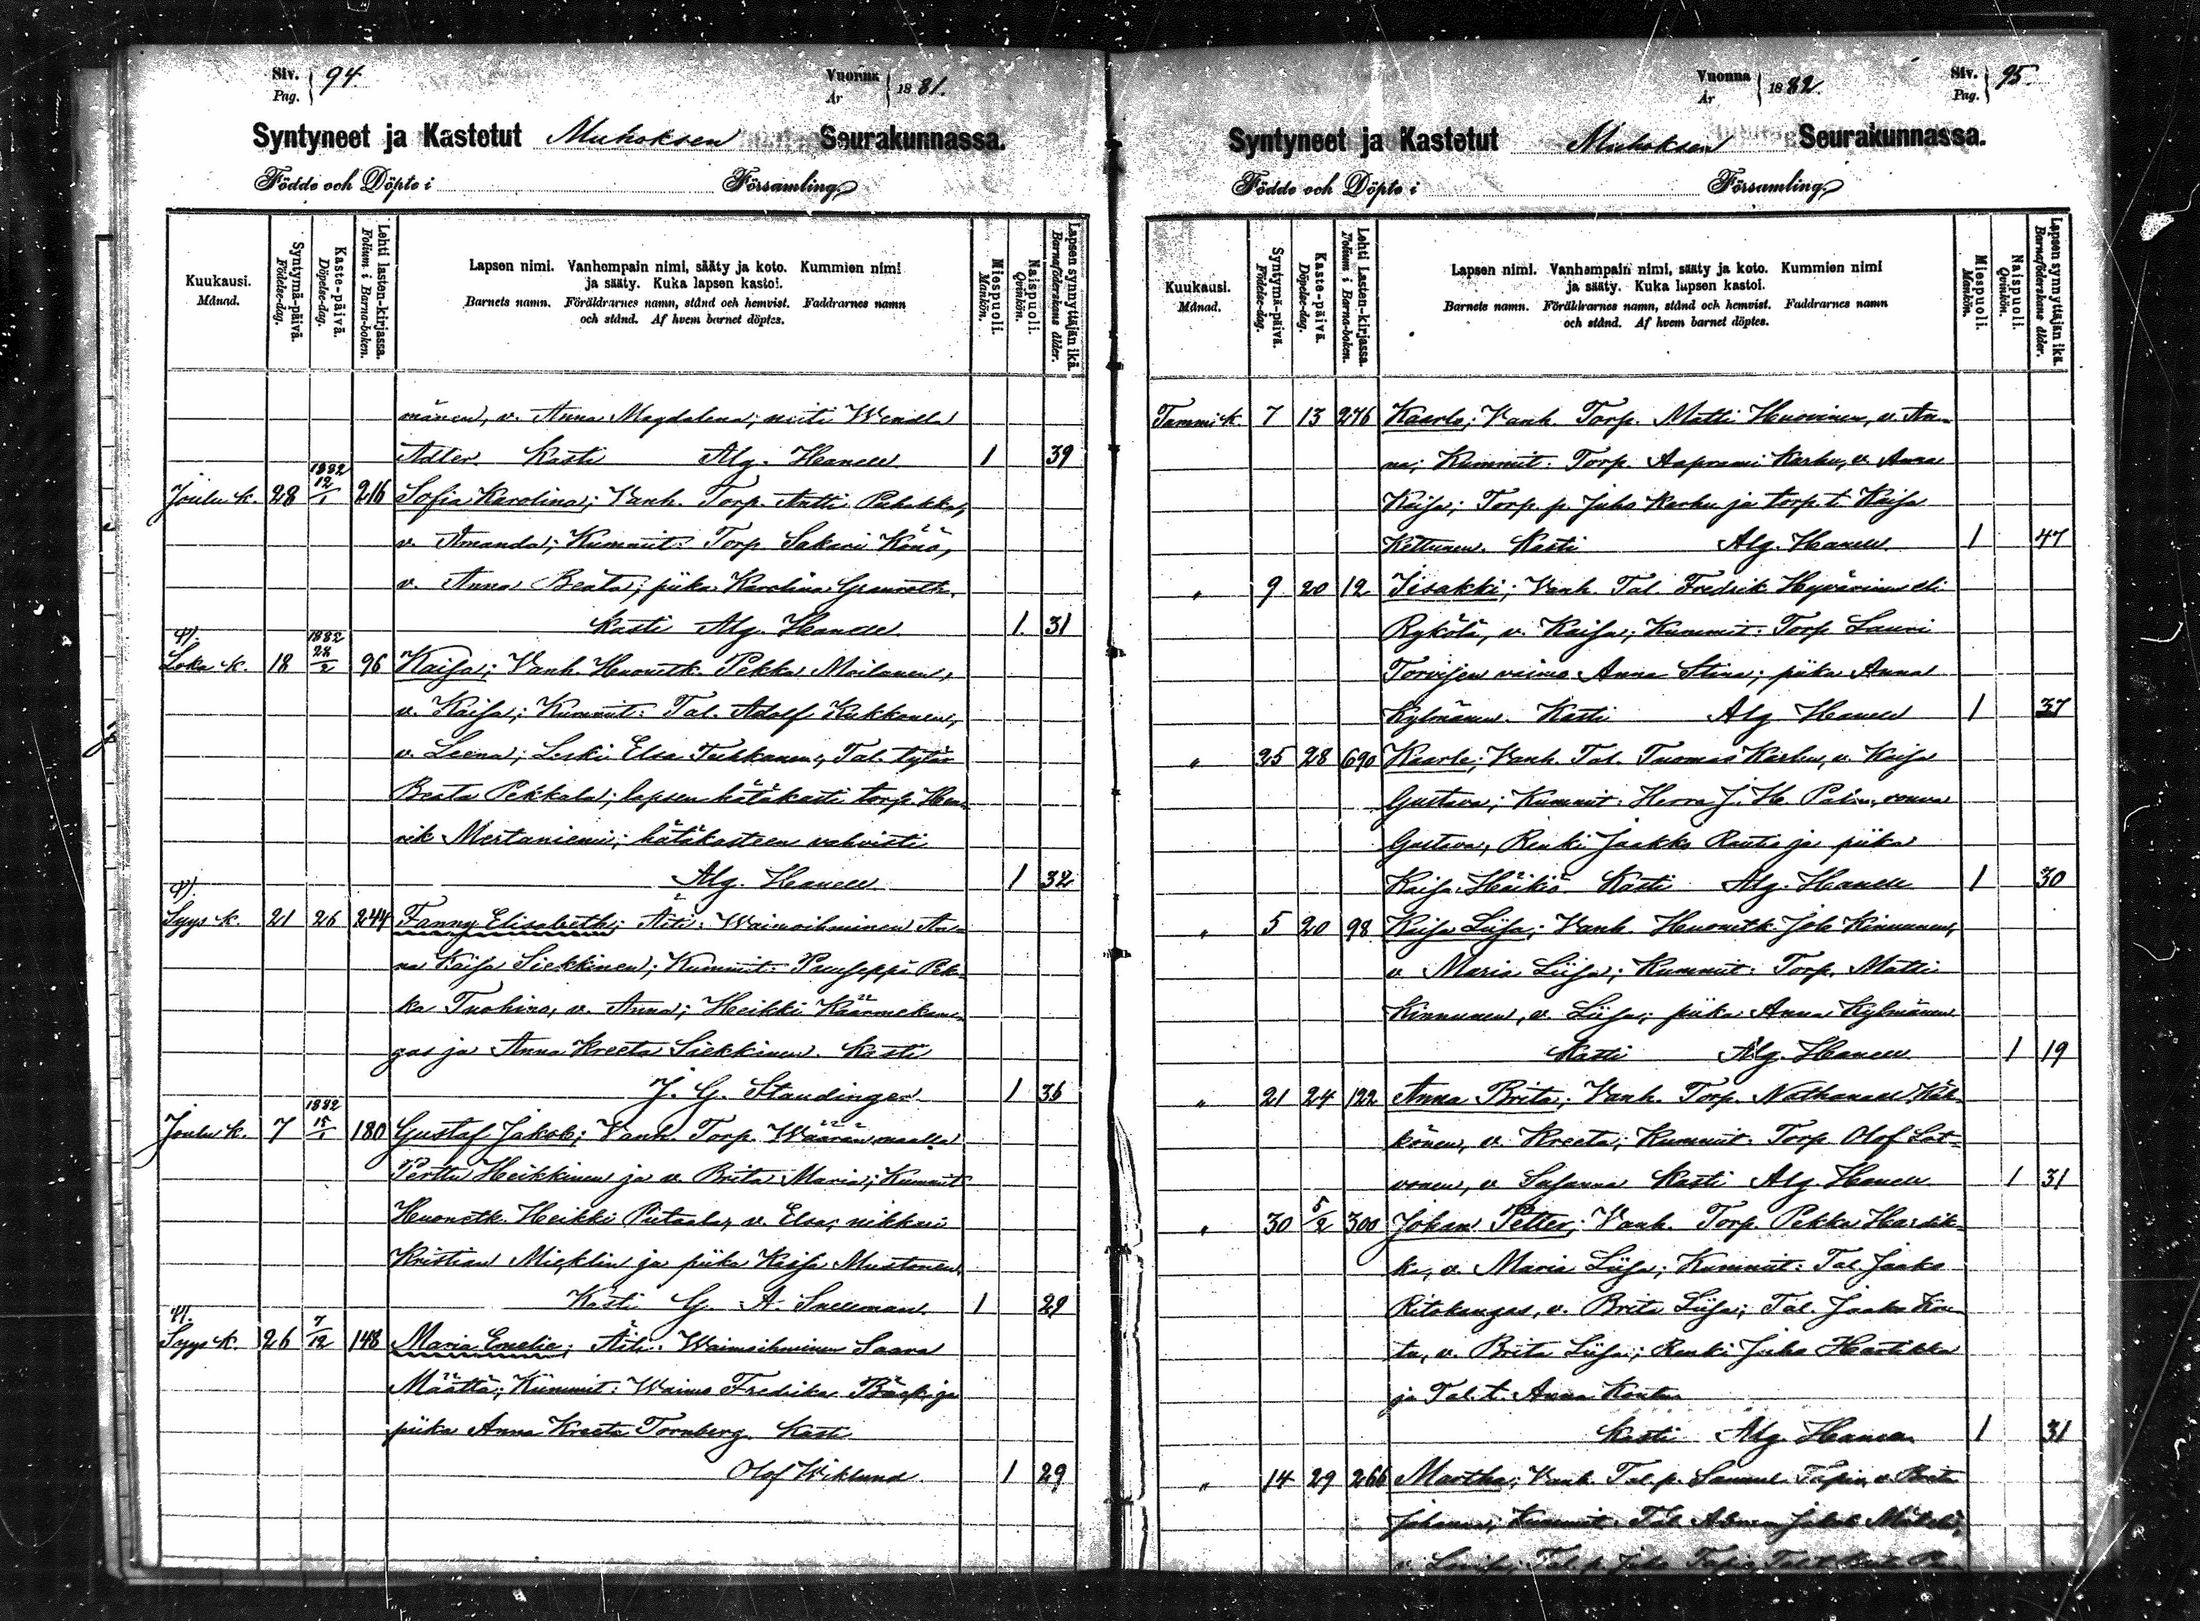 Siv. Pag. 94.
Vuonna År 1881.
Syntyneet ja Kastetut Muhoksen Seurakunnassa.
Födde och Döpte i Församling.
Kuukausi. Månad.
Syntymä-päivä. Födelse-dag.
Kaste-päivä. Döpelse-dag.
Lehti lasten-kirjassa. Folium i Barna-boken.
Lapsen nimi. Vanhempain nimi, sääty ja koto. Kummien nimi
ja sääty. Kuka lapsen kastoi.
Barnets namn. Föräldrarnes namn, stånd och hemvist. Faddrarnes namn
och stånd. Af hvem barnet döptes.
Miespuoli. Mankön.
Naispuoli. Qvinkön.
Lapsen synnyttäjän ikä. Barnaföderskans ålder.
mänen, v. Anna Magdalena; neiti Wendla
Adler. Kasti Alg. Hanell 1 39
Joulu k. 28 1882 12/1 216 Sofia Karolina; Vanh. Torp. Antti Pahakka,
v. Amanda; Kummit: Torp. Sakari Könö,
v. Anna Beata; piika Karolina Granroth.
Kasti Alg. Hanell 1 31
Loka k. 18 1882 28/2 96 Kaisa; Vanh. Huonetk. Pekka Moilanen,
v. Kaisa; Kummit: Tal. Adolf Kukkonen,
v. Leena; Leski Elsa Tuhkanen, Tal. tytär
Beata Pekkala; lapsen hätäkasti torp. Hen-
rik Mertaniemi; hätäkasteen vahvisti
Alg. Hanell 1 32
Syys k. 21 26 244 Fanny Elisabeth; Äiti: Waimoihminen An-
na Kaisa Siekkinen; Kummit: Puuseppä Pek-
ka Tuohino, v. Anna; Heikki Käärmekan-
gas ja Anna Kreeta Siekkinen. Kasti
J. G. Standinger 1 36
Joulu k. 7 1882 15/1 180 Gustaf Jakob; Vanh. Torp. Wäärän maalla
Perttu Heikkinen ja v. Brita Maria; Kummit
Huonetk. Heikki Pietaala, v. Elsa, nikkari
Kristian Micklin ja piika Kaisa Mustonen.
Kasti G. A. Snellman 1 29
Syys k. 26 7/12 148 Maria Emelie; Äiti: Waimoihminen Saara
Määttä; Kummit: Waimo Fredrika Bäck ja
piika Anna Kreeta Tornberg. Kasti
Olof Wiklund 1 29
Vuonna År 1882.
Siv. Pag. 95.
Syntyneet ja Kastetut Muhoksen Seurakunnassa.
Födde och Döpte i Församling.
Kuukausi. Månad.
Syntymä-päivä. Födelse-dag.
Kaste-päivä. Döpelse-dag.
Lehti Lasten-kirjassa. Folium i Barna-boken.
Lapsen nimi. Vanhempain nimi, sääty ja koto. Kummien nimi
ja sääty. Kuka lapsen kastoi.
Barnets namn. Föräldrarnes namn, stånd och hemvist. Faddrarnes namn
och stånd. Af hvem barnet döptes.
Miespuoli. Mankön.
Naispuoli. Qvinkön.
Lapsen synnyttäjän ikä. Barnaföderskans ålder.
Tammi k. 7 13 276 Kaarlo; Vanh. Torp. Matti Huovinen, v. An-
na; Kummit: Torp. Aaprami Karhu, v. Anna
Kaisa; Torp. p. Juho Karhu ja torp. t. Kaisa
Kettunen. Kasti Alg. Hanell 1 47
" 9 20 12 Iisakki; Vanh. Tal. Fredrik Hyvärinen eli
Rykölä, v. Kaisa; Kummit: Torp Lauri
Torvisen vaimo Anna Stina; piika Anna
Kylmänen. Kasti Alg. Hanell 1 37
" 25 28 690 Kaarle; Vanh. Tal. Tuomas Karhu, v. Kaisa
Gustava; Kummit: Herra J. H. rouva
Gustava, Renki Jaakko Rautio ja piika
Kaisa Häikiö Kasti Alg. Hanell 1 30
" 5 20 98 Kaisa Liisa; Vanh. Huonetk. Joh. Kinnunen,
v. Maria Liisa; Kummit: Torp. Matti
Kinnunen, v. Liisa; piika Anna Kylmänen
Kasti Alg. Hanell 1 19
" 21 24 122 Anna Brita; Vanh. Torp. Nathanael Käh-
könen, v. Kreeta; Kummit: Torp Olof Lat-
vonen, v. Susanna Kasti Alg Hanell 1 31
" 30 5/2 300 Johan Petter; Vanh. Torp. Pekka Hardik-
ka, v. Maria Liisa; Kummit: Tal. Jaako
Ritokangas, v. Brita Liisa; Tal. Jaako Kon-
tu, v. Brita Liisa; Renki Juho Hartikka
ja Tal. t. Anna Kontu
Kasti Alg. Hanell 1 31
" 14 29 266 Martha; Vanh. Tal. p. Samuel Tapio, v. Brita
Johanna; Kummit: Tal.
v. Lovisa; Tal. p. Juho Tapio,